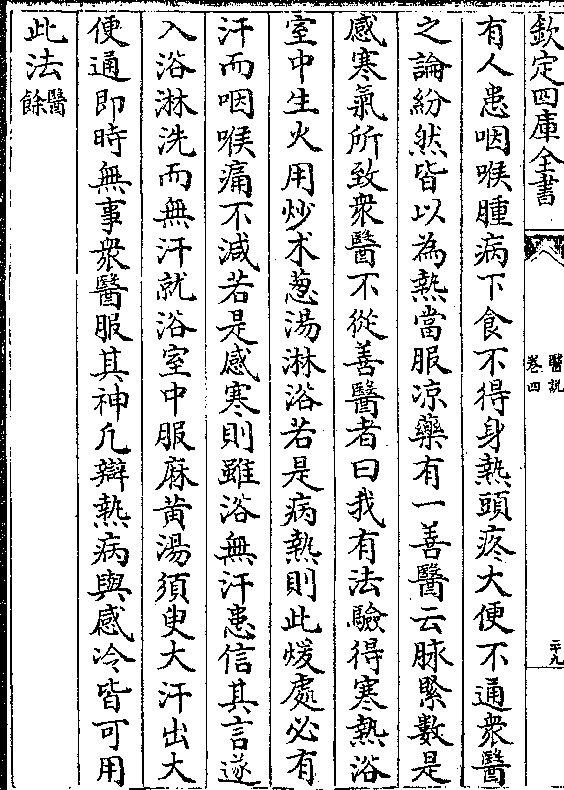 欽定四庫全書
醫說
卷四
二十九
有人患咽喉腫病下食不得身熱頭疼大便不通衆醫
之論紛然皆以為熱當服凉藥有一善醫云脉緊數是
感寒氣所致衆醫不從善醫者曰我有法驗得寒熱浴
室中生火用炒木葱湯淋浴若是病熱則此煖處必有
汗而咽喉痛不減若是感寒則雖浴無汗患信其言遂
入浴淋洗而無汗就浴室中服麻黄湯須臾大汗出大
便通即時無事衆醫服其神凢辯熱病與感冷皆可用
此法醫餘